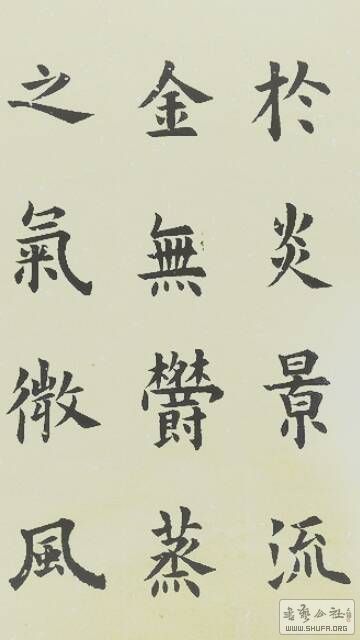 於炎景流
金無欝蒸
之氣微風
WWW.SHUFA.ORG